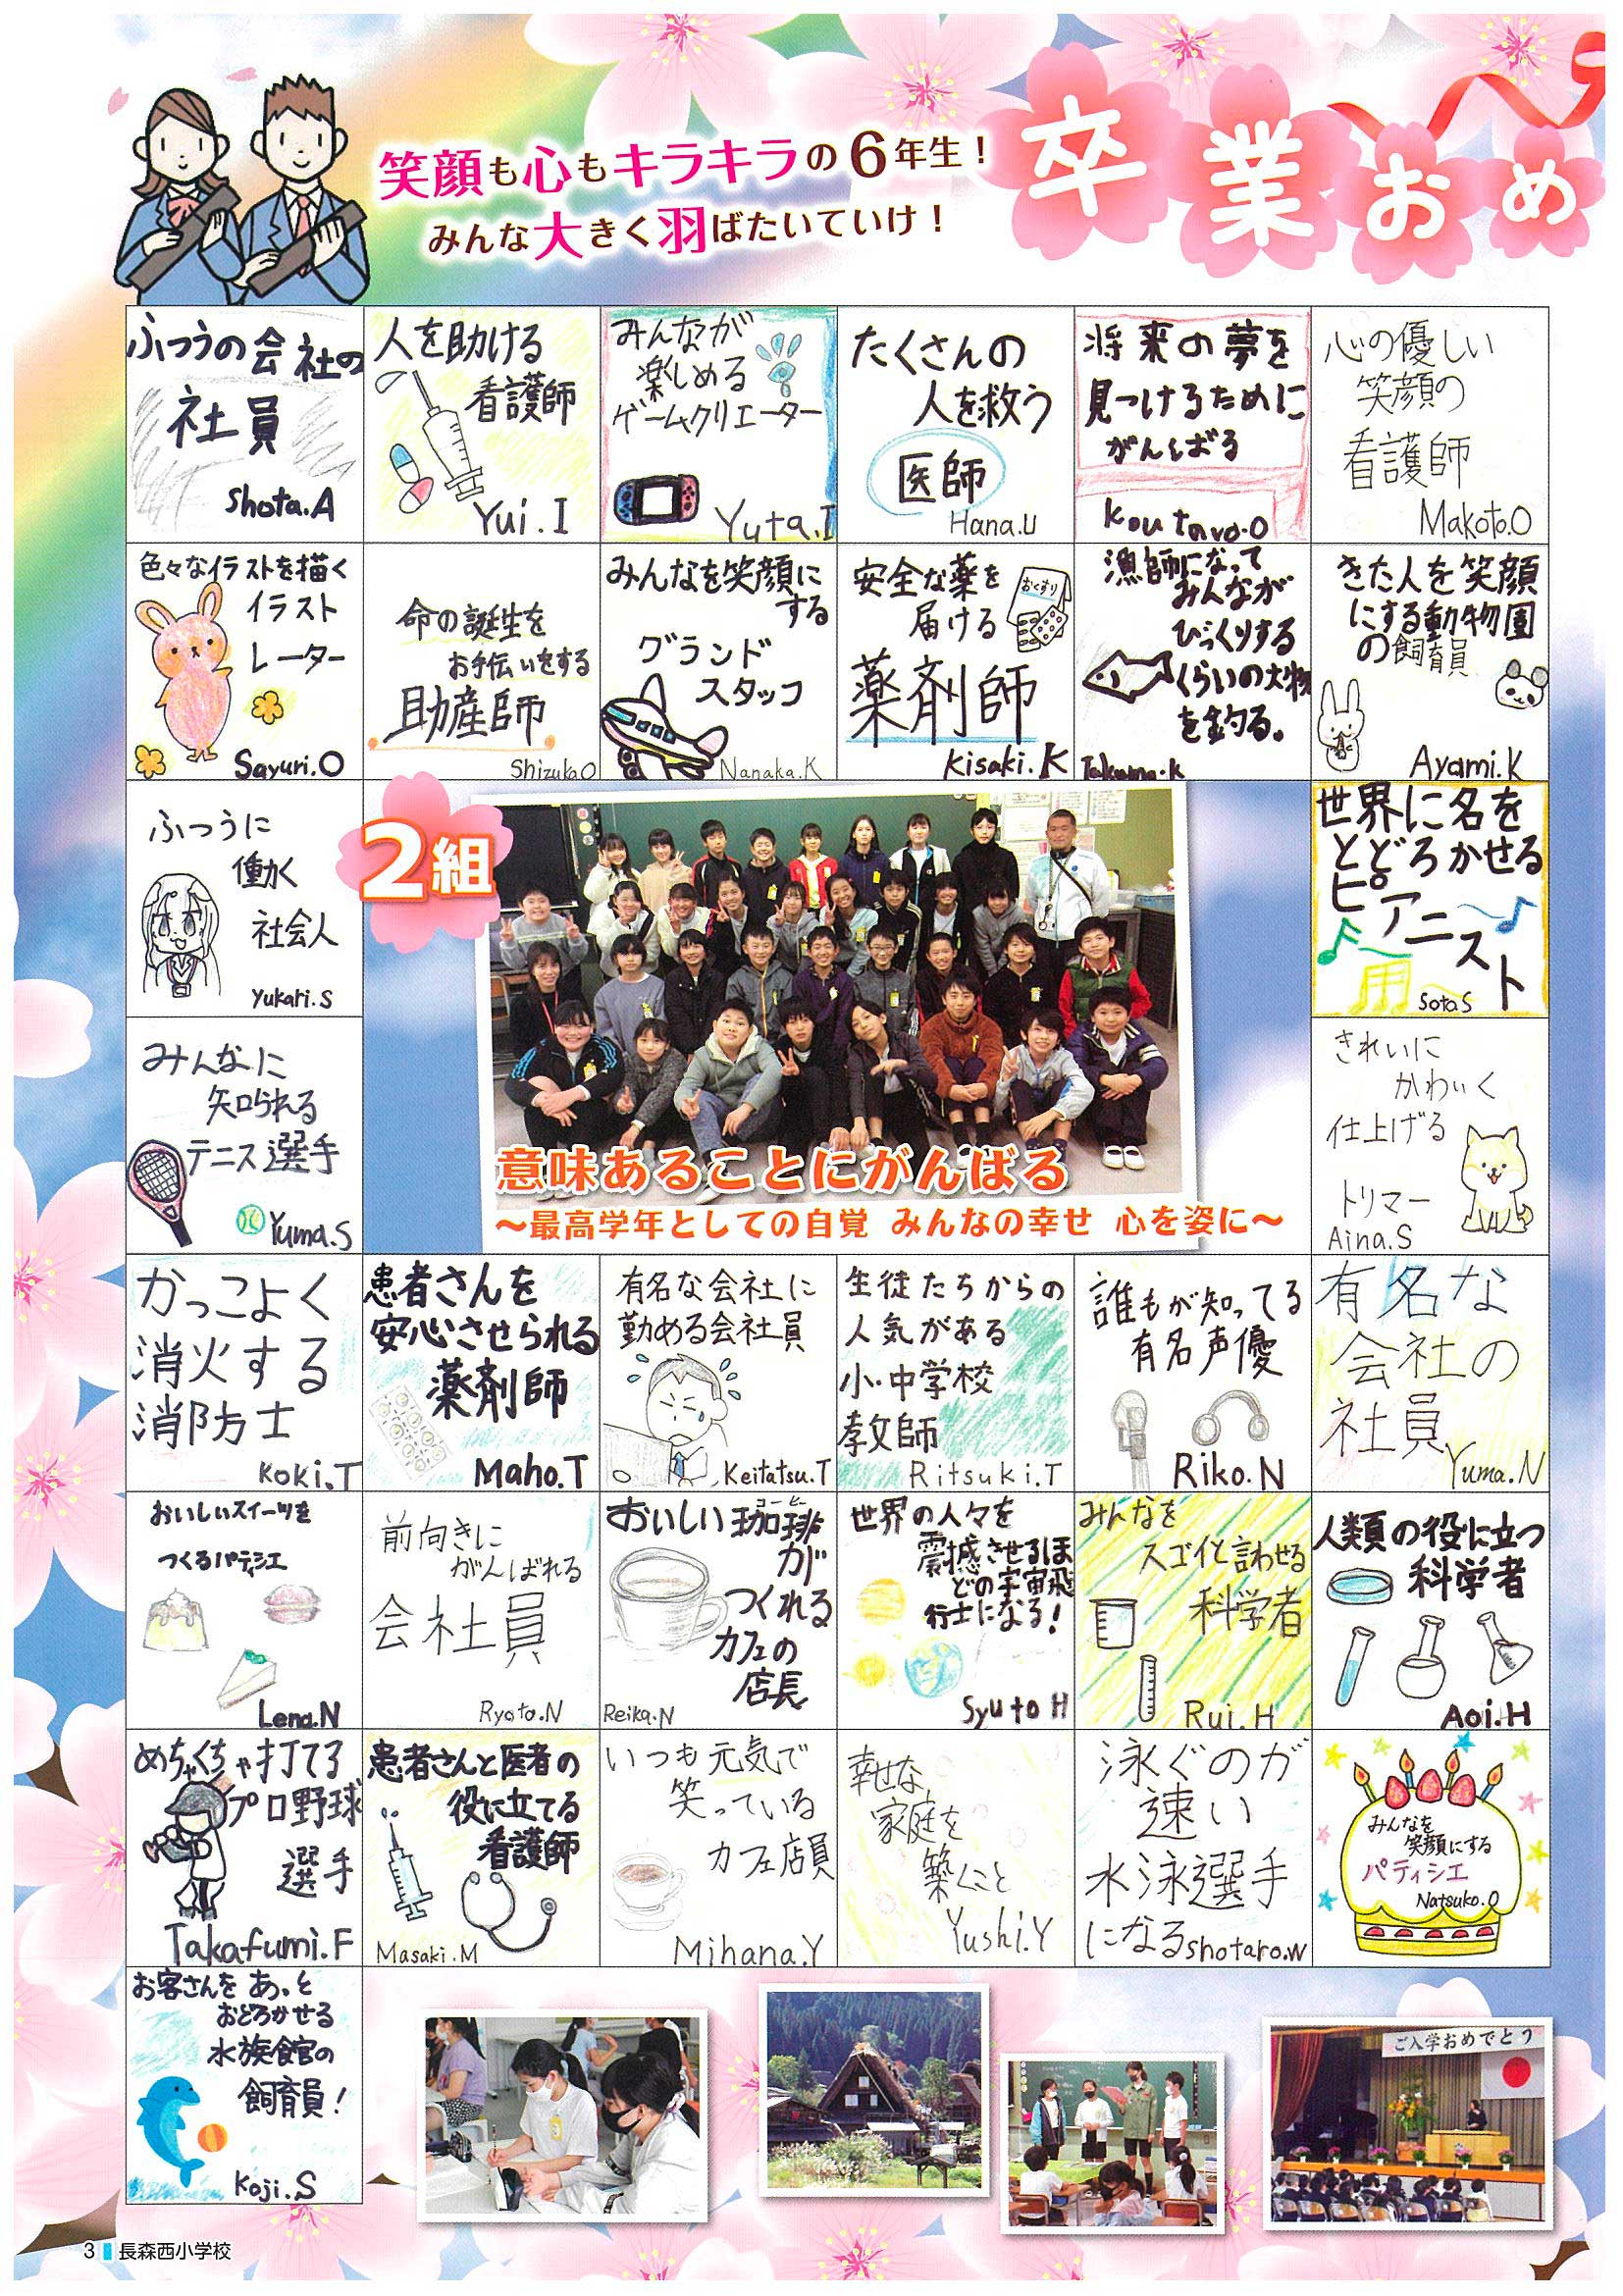 笑顔も心もキラキラの6年生！
みんな大きく羽ばたいていけ！
卒業おめ
ふつうの会社の
社員
Shota.A
人を助ける
看護師
Yui.I
みんなが
楽しめる
ゲームクリエーター
Yuta.I
たくさんの
人を救う
医師
Hana.U
将来の夢を
見つけるために
がんばる
Koutaro.O
心の優しい
笑顔の
看護師
Makoto.O
色々なイラストを描く
イラスト
レーター
Sayuri.O
命の誕生を
お手伝いをする
助産師
Shizuka.O
みんなを笑顔に
する
グランド
スタッフ
Nanaka.K
安全な薬を
届ける
おくすり
薬剤師
Kisaki.K
漁師になって
みんなが
びっくりする
くらいの大物
を釣る。
Takuma.K
きた人を笑顔
にする動物園
の飼育員
Ayami.K
ふつうに
働く
社会人
Yukari.S
2組
世界に名を
とどろかせる
ピアニスト
Sota.S
みんなに
知られる
テニス選手
Yuma.S
意味あることにがんばる
～最高学年としての自覚 みんなの幸せ 心を姿に～
きれいに
かわいく
仕上げる
トリマー
Aina.S
かっこよく
消火する
消防士
Koki.T
患者さんを
安心させられる
薬剤師
Maho.T
有名な会社に
勤める会社員
Keitatsu.T
生徒たちからの
人気がある
小・中学校
教師
Ritsuki.T
誰もが知ってる
有名声優
Riko.N
有名な
会社の
社員
Yuma.N
おいしいスイーツを
つくるパティシエ
Lena.N
前向きに
がんばれる
会社員
Ryoto.N
コーヒー
おいしい珈琲
が
つくれる
カフェの
店長
Reika.N
世界の人々を
震撼させるほ
どの宇宙飛
行士になる!
Syuto H
みんなを
スゴイと言わせる
科学者
Rui.H
人類の役に立つ
科学者
Aoi.H
めちゃくちゃ打てる
プロ野球
選手
Takafumi.F
患者さんと医者の
役に立てる
看護師
Masaki.M
いつも元気で
笑っている
カフェ店員
Mihana.Y
幸せな
家庭を
築くこと
Yushi.Y
泳ぐのが
速い
水泳選手
になる
Shotaro.W
みんなを
笑顔にする
パティシエ
Natsuko.O
お客さんをあっと
おどろかせる
水族館の
飼育員!
Koji.S
ご入学おめでとう
3 長森西小学校